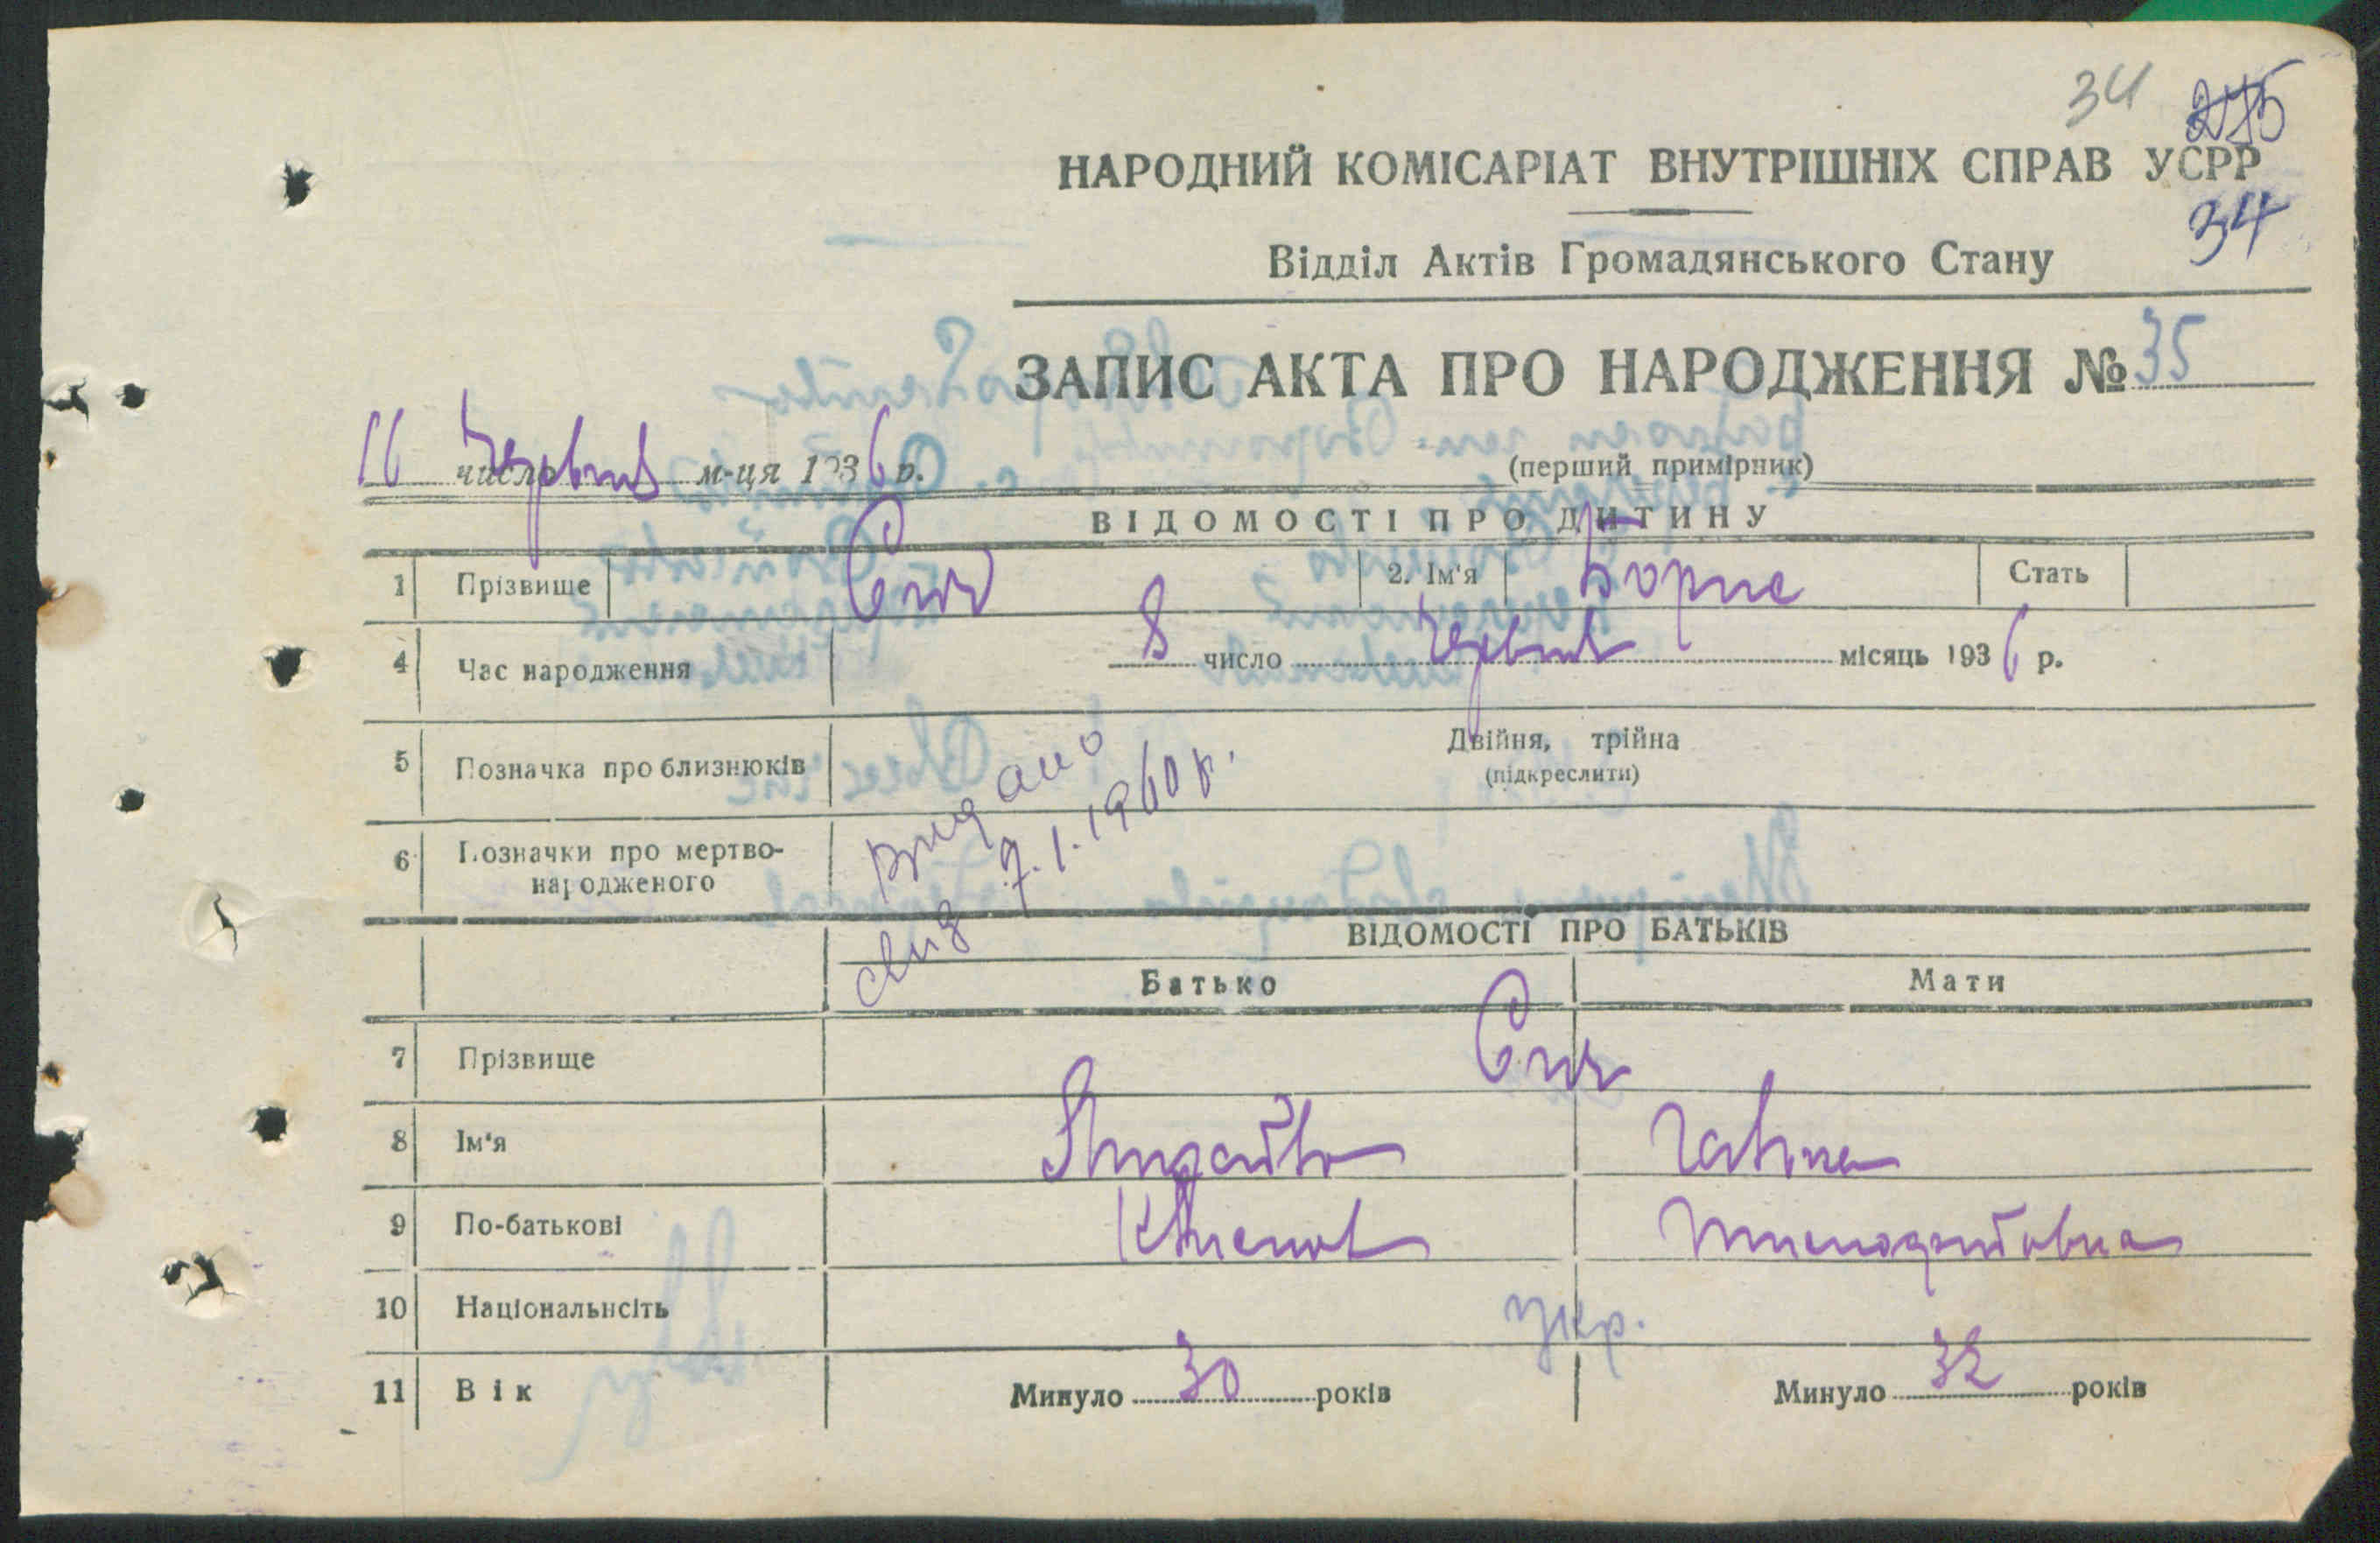 34
34
НАРОДНИЙ КОМІСАРІАТ ВНУТРІШНІХ СПРАВ УСРР
Відділ Актів Громадянського Стану
ЗАПИС АКТА ПРО НАРОДЖЕННЯ № 35
16 число червня м-ця 1936 р.
(перший примірник)
ВІДОМОСТІ ПРО ДИТИНУ
1 Прізвище 2. Ім'я Борис Стать
4 Час народження 8 число червня місяць 1936 р.
5 Позначка про близнюків Двійня, трійна
(підкреслити)
6 Позначки про мертво-
народженого
видано
7.1.1960 р.
ВІДОМОСТІ ПРО БАТЬКІВ
Батько Мати
7 Прізвище
8 Ім'я
9 По-батькові
10 Національнсіть укр.
11 Вік Минуло 30 років Минуло 32 років